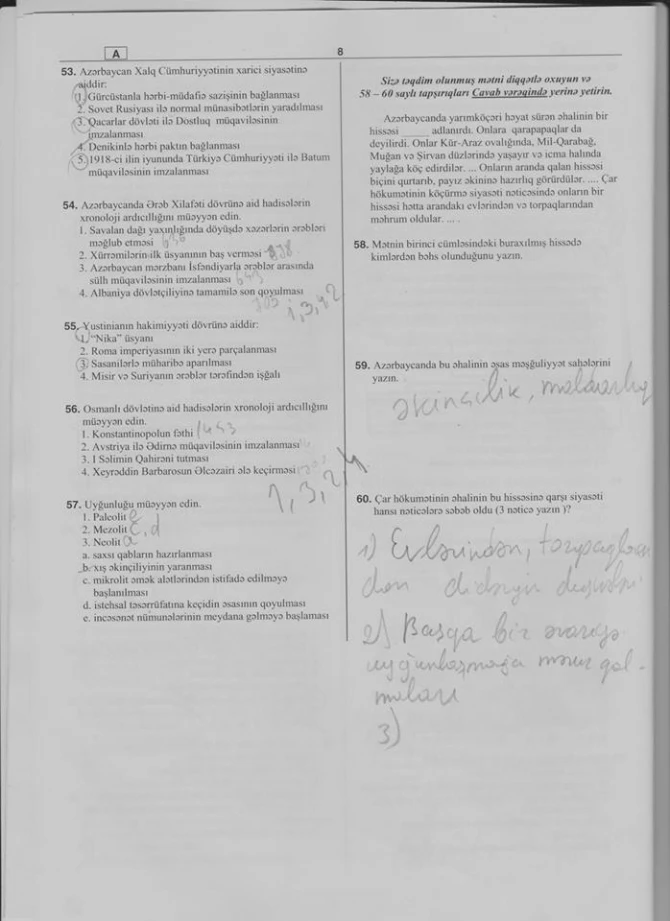 A
8
53. Azərbaycan Xalq Cümhuriyyətinin xarici siyasətinə
aiddir:
1. Gürcüstanla hərbi-müdafiə sazişinin bağlanması
2. Sovet Rusiyası ilə normal münasibətlərin yaradılması
3. Qacarlar dövləti ilə Dostluq müqaviləsinin
imzalanması
4. Denikinlə hərbi paktın bağlanması
5. 1918-ci ilin iyununda Türkiyə Cümhuriyyəti ilə Batum
müqaviləsinin imzalanması
54. Azərbaycanda Ərəb Xilafəti dövrünə aid hadisələrin
xronoloji ardıcıllığını müəyyən edin.
1. Savalan dağı yaxınlığında döyüşdə xəzərlərin ərəbləri
məğlub etməsi
2. Xürrəmilərin ilk üsyanının baş verməsi
3. Azərbaycan mərzbanı İsfəndiyarla ərəblər arasında
sülh müqaviləsinin imzalanması
4. Albaniya dövlətçiliyinə tamamilə son qoyulması
55. Yustinianın hakimiyyəti dövrünə aiddir:
1. "Nika" üsyanı
2. Roma imperiyasının iki yerə parçalanması
3. Sasanilərlə müharibə aparılması
4. Misir və Suriyanın ərəblər tərəfindən işğalı
56. Osmanlı dövlətinə aid hadisələrin xronoloji ardıcıllığını
müəyyən edin.
1. Konstantinopolun fəthi 1453
2. Avstriya ilə Ədirnə müqaviləsinin imzalanması
3. I Səlimin Qahirəni tutması
4. Xeyrəddin Barbarosun Əlcəzairi ələ keçirməsi
1,3,2,4
57. Uyğunluğu müəyyən edin.
1. Paleolit e
2. Mezolit c, d
3. Neolit a
a. saxsı qabların hazırlanması
b. xış əkinçiliyinin yaranması
c. mikrolit əmək alətlərindən istifadə edilməyə
başlanılması
d. istehsal təsərrüfatına keçidin əsasının qoyulması
e. incəsənət nümunələrinin meydana gəlməyə başlaması
Sizə təqdim olunmuş mətni diqqətlə oxuyun və
58 – 60 saylı tapşırıqları Cavab vərəqində yerinə yetirin.
Azərbaycanda yarımköçəri həyat sürən əhalinin bir
hissəsi _____ adlanırdı. Onlara qarapapaqlar da
deyilirdi. Onlar Kür-Araz ovalığında, Mil-Qarabağ,
Muğan və Şirvan düzlərində yaşayır və icma halında
yaylağa köç edirdilər. ... Onların aranda qalan hissəsi
biçini qurtarıb, payız əkininə hazırlıq görürdülər. .... Çar
hökumətinin köçürmə siyasəti nəticəsində onların bir
hissəsi hətta arandakı evlərindən və torpaqlarından
məhrum oldular. ... .
58. Mətnin birinci cümləsindəki buraxılmış hissədə
kimlərdən bəhs olunduğunu yazın.
59. Azərbaycanda bu əhalinin əsas məşğuliyyət sahələrini
yazın.
əkinçilik, maldarlıq
60. Çar hökumətinin əhalinin bu hissəsinə qarşı siyasəti
hansı nəticələrə səbəb oldu (3 nəticə yazın )?
1) Evlərindən, torpaqların
dan didərgin
2) Başqa bir əraziyə
uyğunlaşmağa məcur qal-
maları
3)